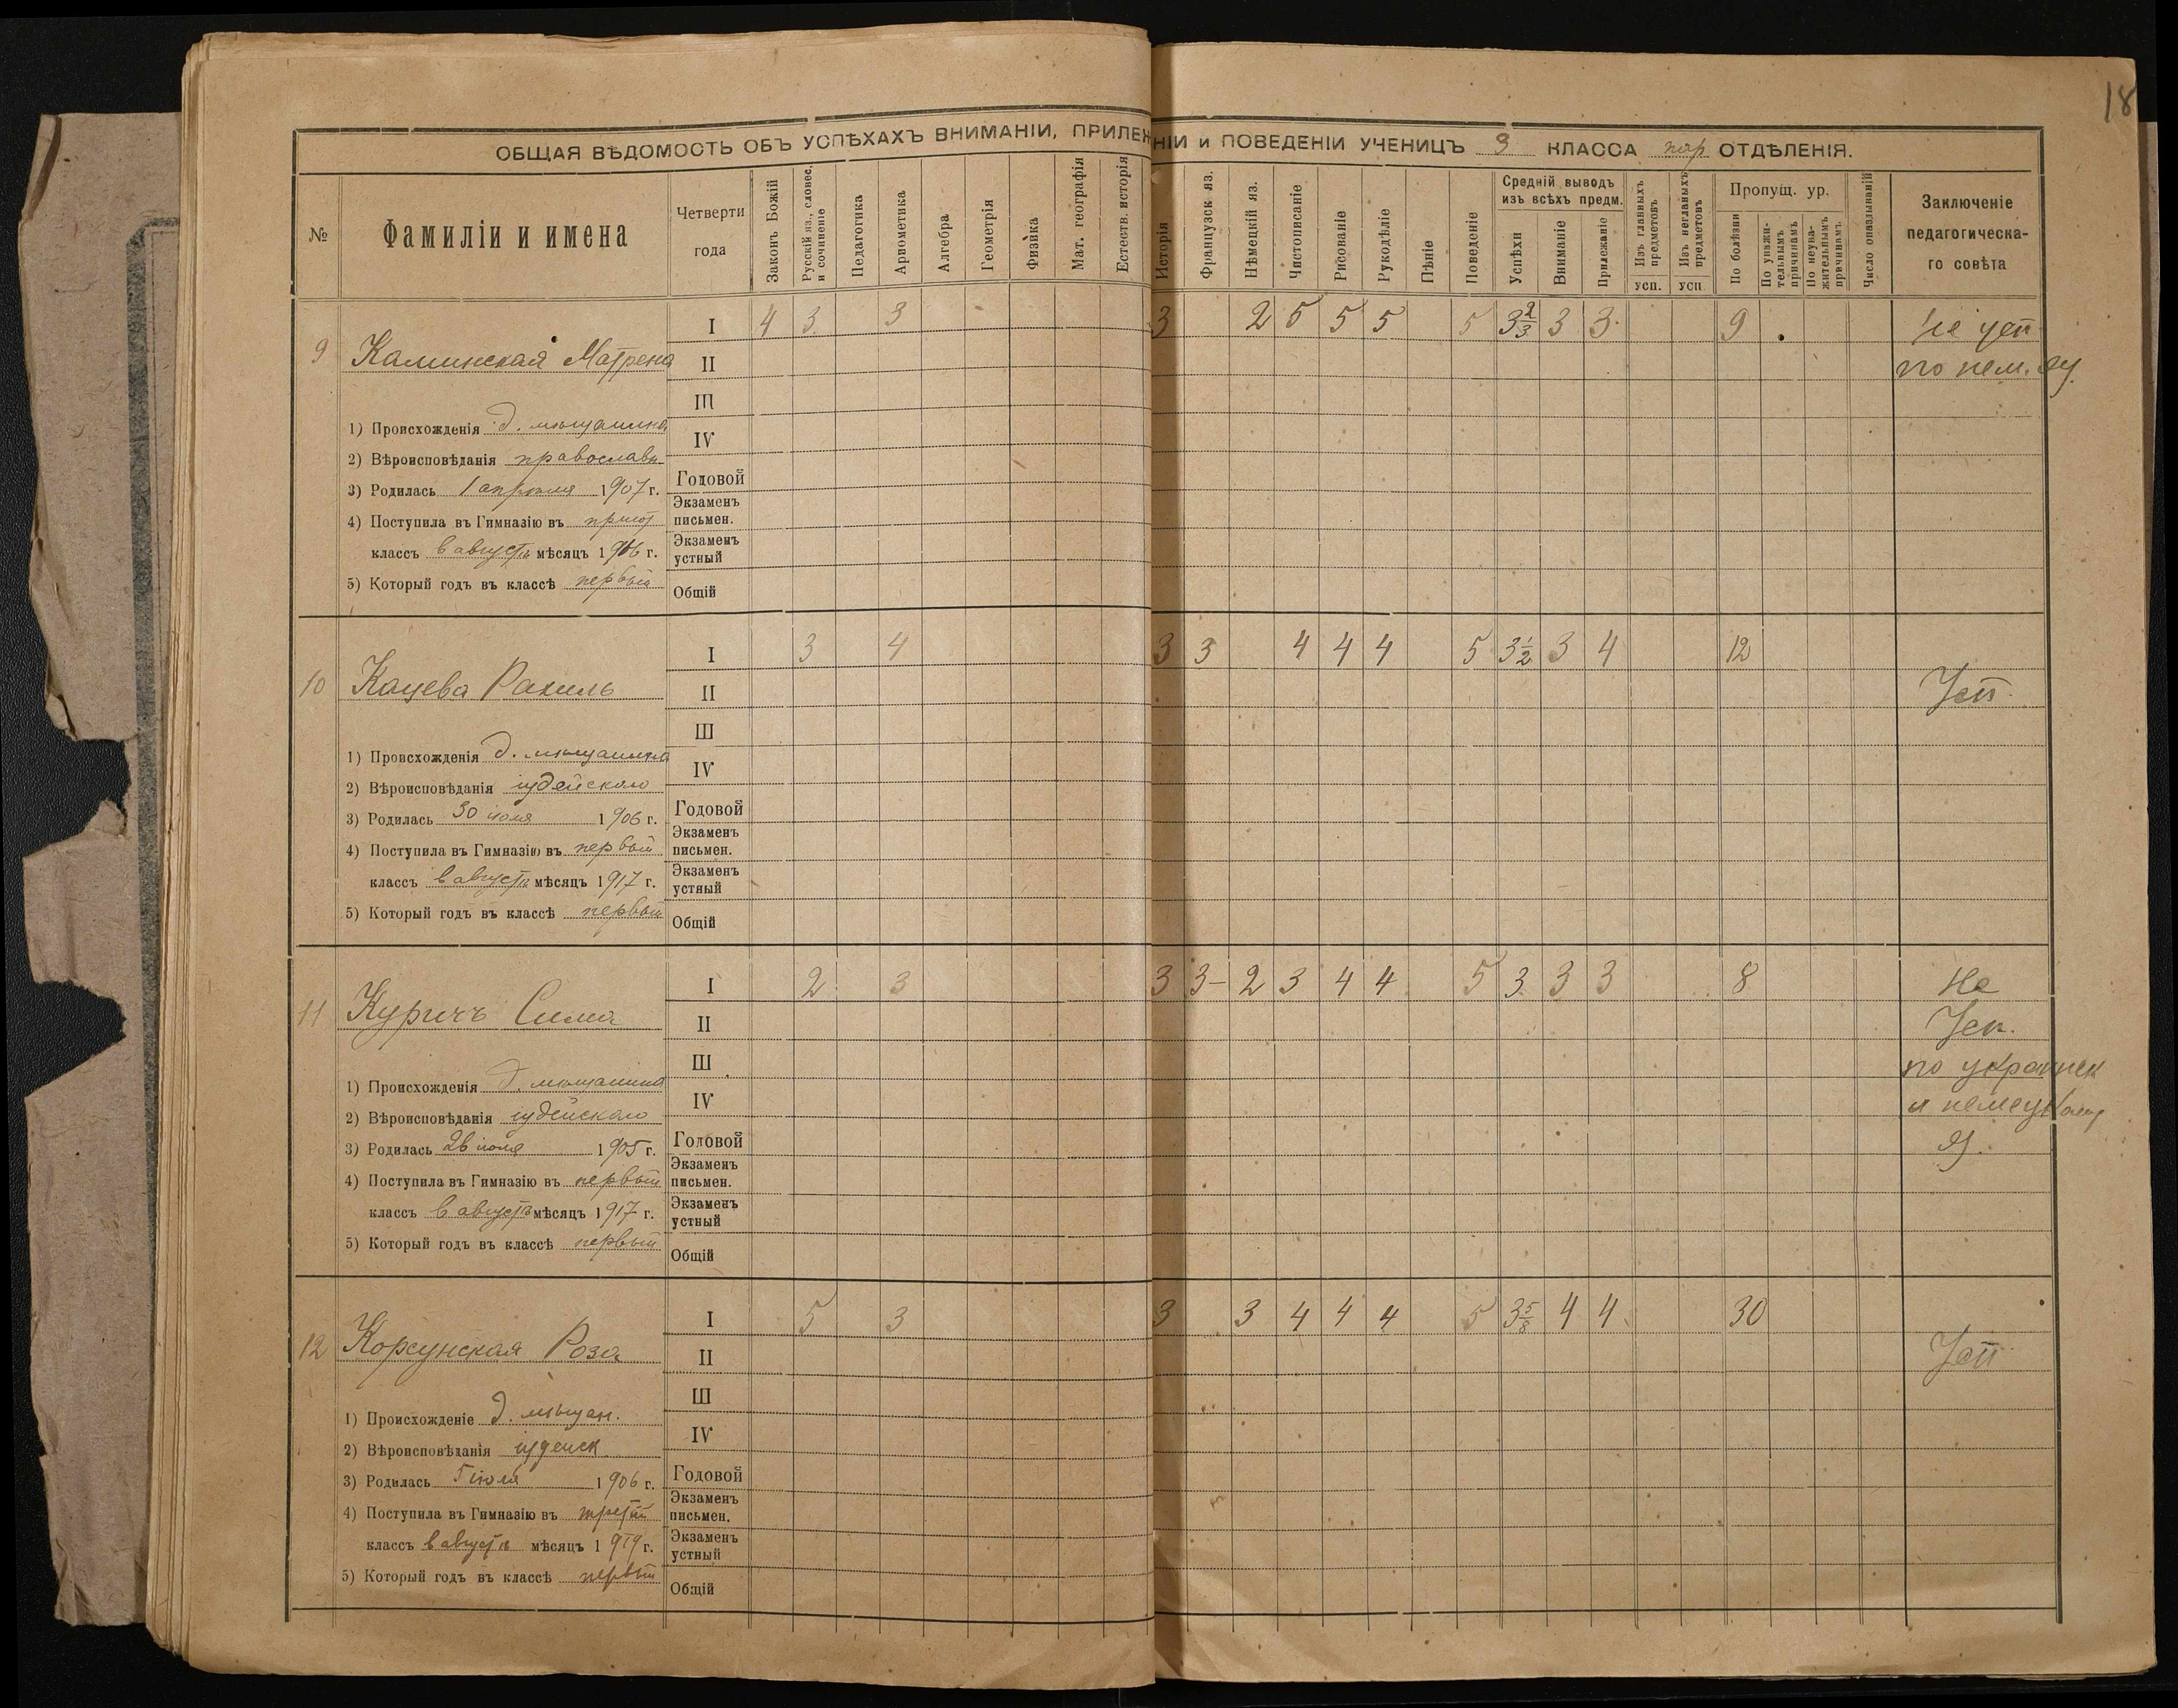 18
ОБЩАЯ ВѢДОМОСТЬ ОБЪ УСПѢХАХЪ ВНИМАНІИ, ПРИЛЕЖНІИ и ПОВЕДЕНІИ УЧЕНИЦЪ 3 КЛАССА пар ОТДѢЛЕНІЯ.
№ Фамиліи и имена Четверти года Законъ Божій Русскій яз., словес. и сочиненіе Педагогика Ариѳметика Алгебра Геометрія Физика Мат. географія Естеств. исторія Исторія Французск яз. Нѣмецкій яз. Чистописаніе Рисованіе Рукодѣліе Пѣніе Поведеніе Средній выводъ изъ всѣхъ предм. Успѣхи Вниманіе Прилежаніе Изъ главныхъ предметовъ усп. Изъ неглавныхъ предметовъ усп Пропущ. ур. По болѣзни По уважительнымъ причинамъ По неуважительнымъ причинамъ Число опаздываній Заключеніе педагогическаго совѣта
9 Каминская Матрена I 4 3 3 3 2 5 5 5 5 3 2/3 3 3 9 Не усп
II по нем. яз.
III
1) Происхожденія д. мѣщанина
IV
2) Вѣроисповѣданія православн
3) Родилась 1 апрѣля 1907 г. Годовой
4) Поступила въ Гимназію въ пригот Экзаменъ письмен.
классъ въ августѣ мѣсяцъ 1916 г. Экзаменъ устный
5) Который годъ въ классѣ первый Общій
10 Кацева Рахиль I 3 4 3 3 4 4 4 5 3 1/2 3 4 12
II Усп.
III
1) Происхожденія д. мѣщанина
IV
2) Вѣроисповѣданія іудейскаго
3) Родилась 30 іюля 1906 г. Годовой
4) Поступила въ Гимназію въ первый Экзаменъ письмен.
классъ въ августѣ мѣсяцъ 1917 г. Экзаменъ устный
5) Который годъ въ классѣ первый Общій
11 Куричъ Сима I 2 3 3 3- 2 3 4 4 5 3 3 3 8 Не
II Усп.
III по украинск
1) Происхожденія д. мѣщанина
IV и немецкому
2) Вѣроисповѣданія іудейскаго
3) Родилась 26 іюля 1905 г. Годовой яз.
4) Поступила въ Гимназію въ первый Экзаменъ письмен.
классъ въ августѣ мѣсяцъ 1917 г. Экзаменъ устный
5) Который годъ въ классѣ первый Общій
12 Корсунская Роза I 5 3 3 3 4 4 4 5 3 5/8 4 4 30
II Усп
III
1) Происхожденіе д. мѣщан.
IV
2) Вѣроисповѣданія іудейск
3) Родилась 5 іюля 1906 г. Годовой
4) Поступила въ Гимназію въ третій Экзаменъ письмен.
классъ въ августѣ мѣсяцъ 1919 г. Экзаменъ устный
5) Который годъ въ классѣ первый Общій